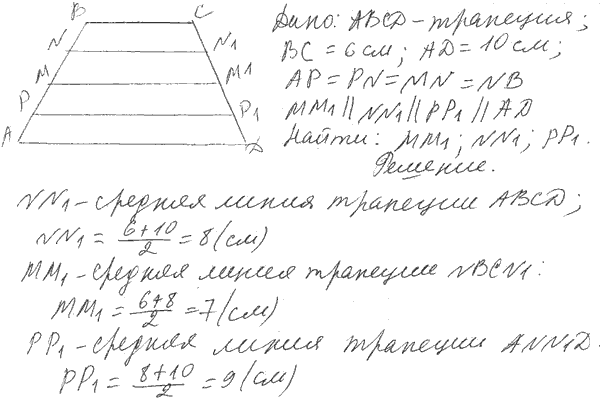 B C
N N1
M M1
P P1
A D
Дано: ABCD - трапеция;
BC = 6 см; AD = 10 см;
AP = PN = MN = NB
MM1 || NN1 || PP1 || AD
Найти: MM1; NN1; PP1.
Решение.
NN1 - средняя линия трапеции ABCD;
NN1 = (6+10)/2 = 8 (см)
MM1 - средняя линия трапеции NBCN1:
MM1 = (6+8)/2 = 7 (см)
PP1 - средняя линия трапеции ANN1D.
PP1 = (8+10)/2 = 9 (см)